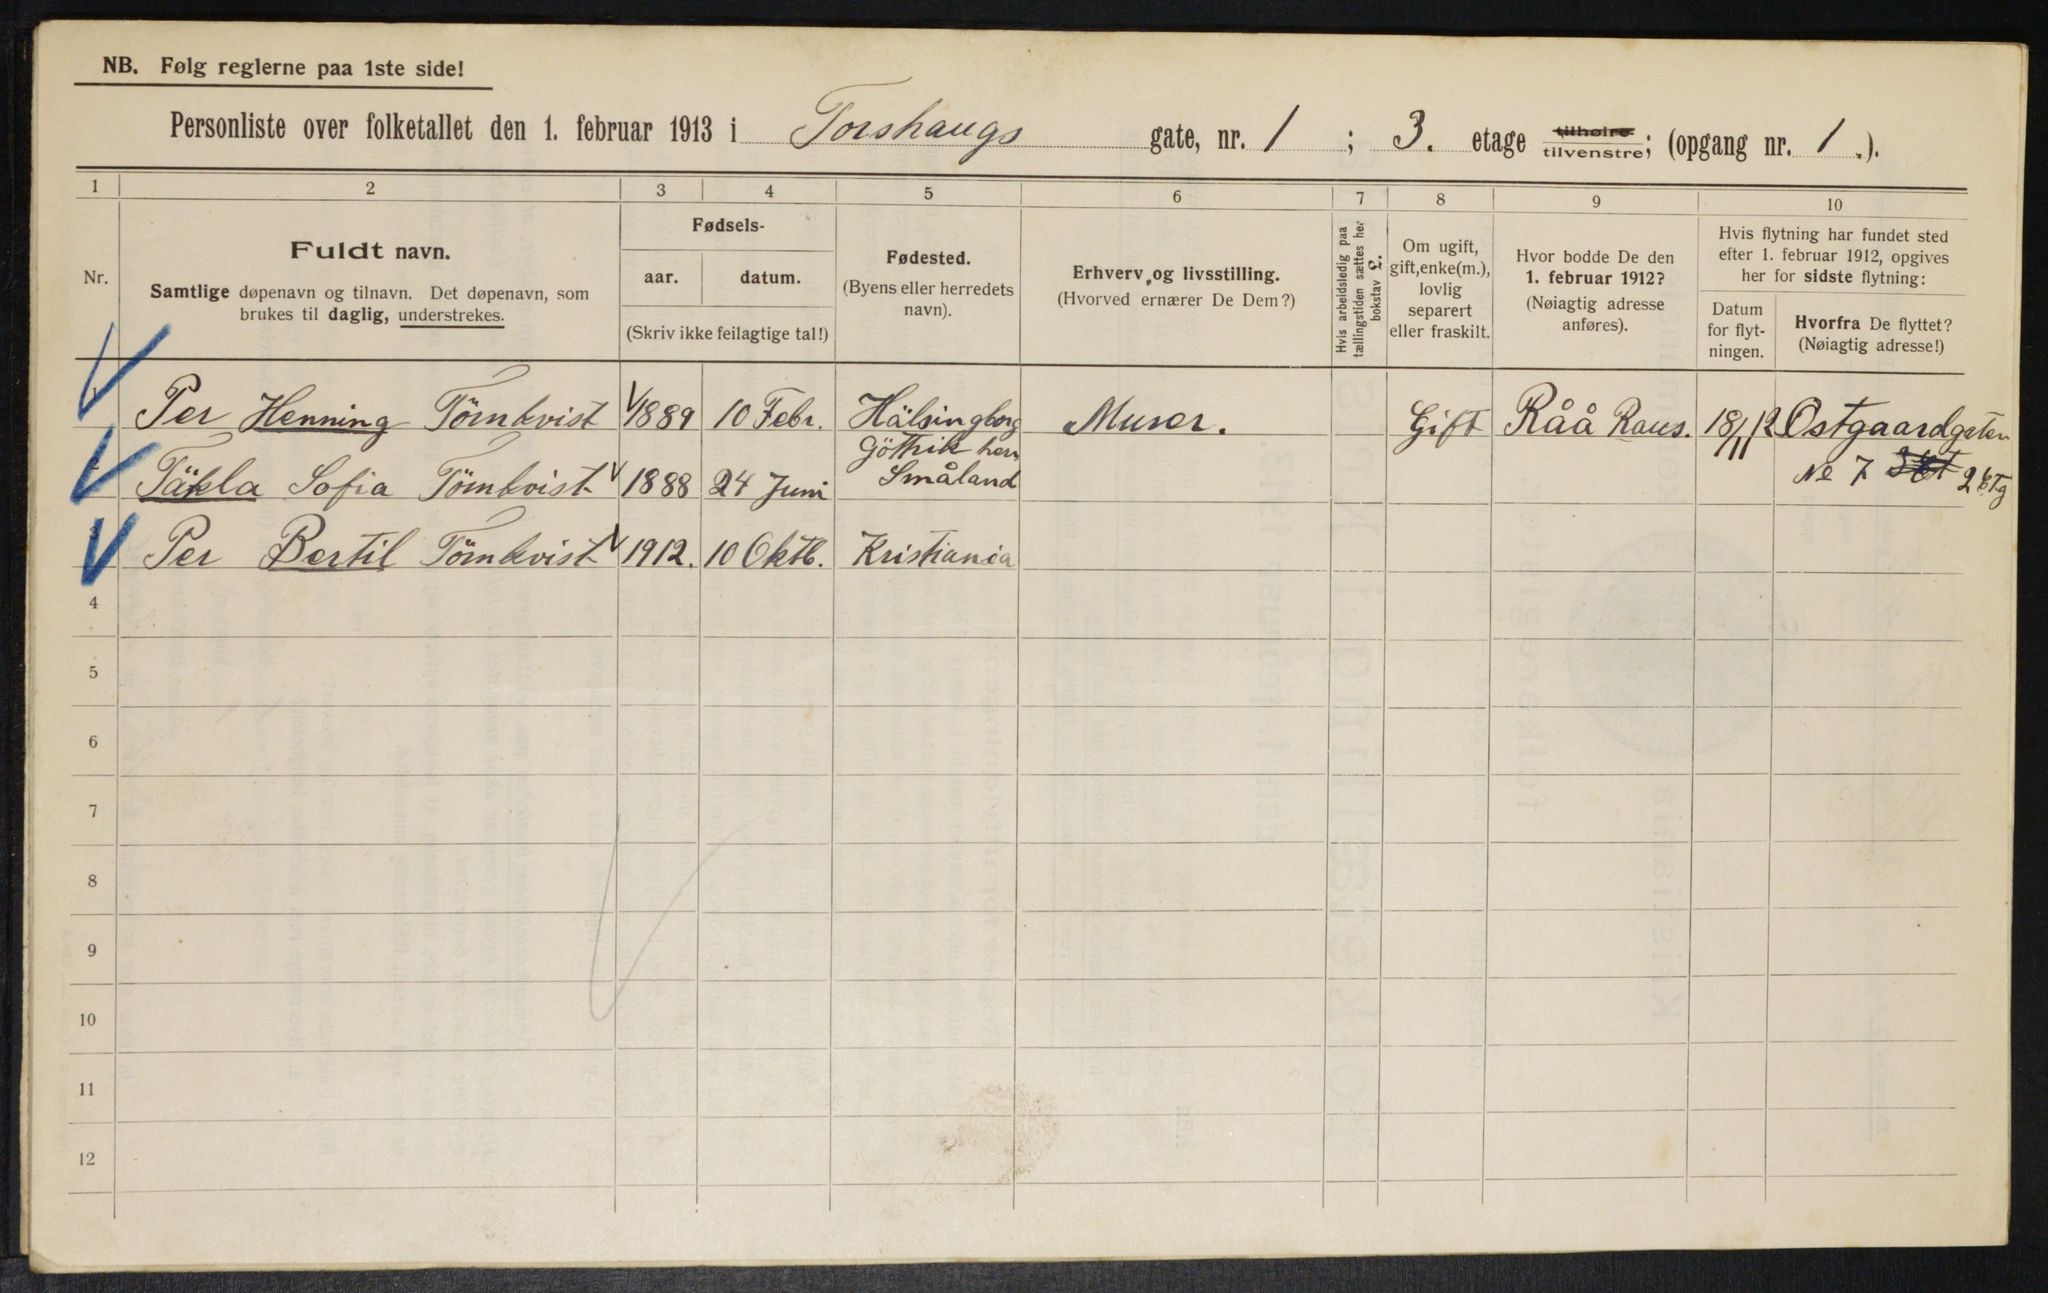 NB. Følg reglerne paa 1ste side!
Personliste over folketallet den 1. februar 1913 i Torshaugs gate, nr. 1 ; 3. etage tilhøire tilvenstre; (opgang nr. 1 .).
1 2 3 4 5 6 7 8 9 10
Nr.
Fuldt navn.
Samtlige døpenavn og tilnavn. Det døpenavn, som
brukes til daglig, understrekes.
Fødsels-
aar. datum.
(Skriv ikke feilagtige tal!)
Fødested.
(Byens eller herredets
navn).
Erhverv og livsstilling.
(Hvorved ernærer De Dem?)
Hvis arbeidsledig paa
tællingstiden sættes her
bokstav
Om ugift,
gift, enke(m.),
lovlig
separert
eller fraskilt.
Hvor bodde De den
1. februar 1912?
(Nøiagtig adresse
anføres).
Hvis flytning har fundet sted
efter 1. februar 1912, opgives
her for sidste flytning:
Datum
for flyt-
ningen.
Hvorfra De flyttet?
(Nøiagtig adresse!)
Per Henning Törnkvist 1889 10 Febr. Hälsingborg Murer. Gift Råå Raus. 18/11 12 Østgaardgaten
No 7 2 Etg
Täkla Sofia Törnkvist 1888 24 Juni Göthik
Småland
3 Per Bertil Törnkvist 1912. 10 Oktb. Kristiania
4
5
6
7
8
9
10
11
12